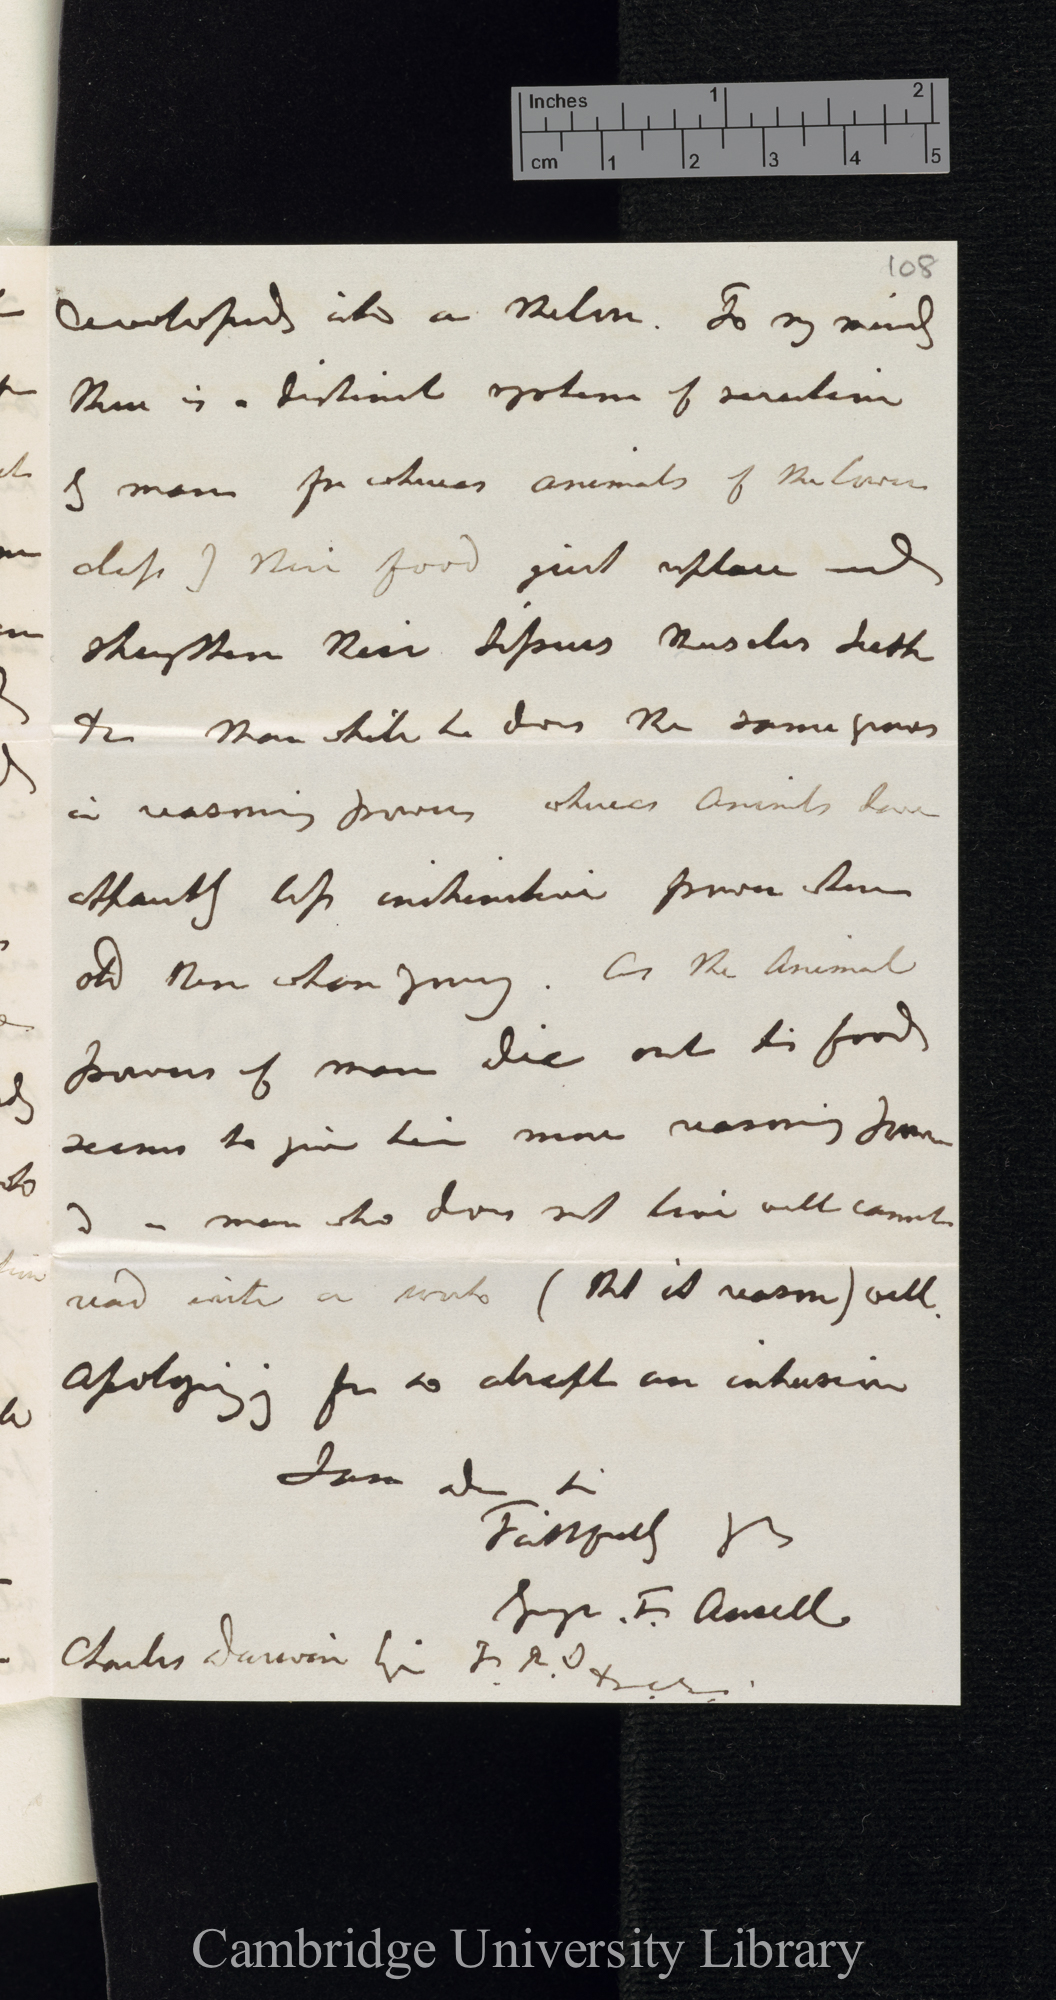 Inches 1 2
cm 1 2 3 4 5
108
developed into a Melon. To my mind
there is a distinct system of secretion
in man for whereas animals of the lower
class } their food just replace and
strengthen their tissues muscles teeth
&c man while he does the same grows
in reasoning powers whereas animals have
apparently less instinctive power when
old then when young. As the animal
powers of man die out his food
seems to give him more reasoning power
& a man who does not live well cannot
read write or work (that is reason) well.
Apologizing for so abrupt an intrusion
I am dear Sir
Faithfully yrs
George. F. Ansell
Charles Darwin Esq F. R. S &c. &c.
Cambridge University Library